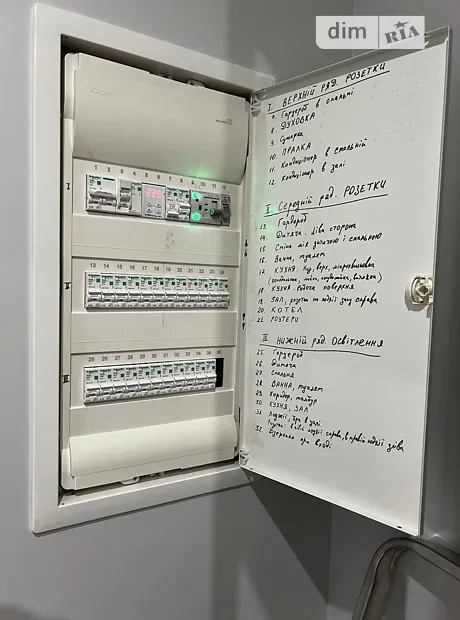 dim RIA
hager
I. ВЕРХНІЙ РЯД. РОЗЕТКИ
7. Гардероб в спальні
8. ДУХОВКА
9. Сушарка
10. ПРАЛКА
11. Кондиціонер в спальній
12. Кондиціонер в залі
1 2 3 4 5 6 7 8 9 10 11 12
I
II Середній ряд. РОЗЕТКИ
13. Гардероб
14. Дитяча. ліва сторона
15. Стіна між дитячою і спальнею
16. Ванна, туалет
17. КУХНЯ
18. КУХНЯ робоча поверхня
19. ЗАЛ, розетки на лоджії зліва справа
20. КОТЕЛ
21. РОУТЕРИ
13 14 15 16 17 18 19 20 21 22 23 24
II
III НИЖНІЙ РЯД. ОСВІТЛЕННЯ
25. Гардероб
26. Дитяча
27. Спальня
28. ВАННА, туалет
29. Коридор, тамбур
30. КУХНЯ, ЗАЛ
31. Лоджії, бра в залі
32. Дзеркало при вході
25 26 27 28 29 30 31 32 33 34 35 36
III